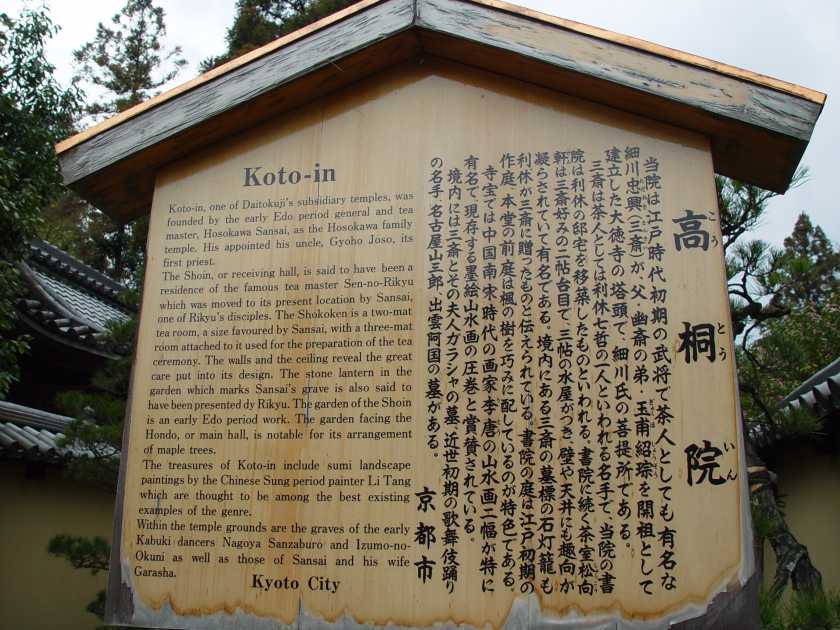 Koto-in
Koto-in, one of Daitokuji's subsidiary temples, was
founded by the early Edo period general and tea
master, Hosokawa Sansai, as the Hosokawa family
temple. His appointed his uncle, Gyoho Joso, its
first priest.
The Shoin, or receiving hall, is said to have been a
residence of the famous tea master Sen-no-Rikyu
which was moved to its present location by Sansai,
one of Rikyu's disciples. The Shokoken is a two-mat
tea room, a size favoured by Sansai, with a three-mat
room attached to it used for the preparation of the tea
ceremony. The walls and the ceiling reveal the great
care put into its design. The stone lantern in the
garden which marks Sansai's grave is also said to
have been presented dy Rikyu. The garden of the Shoin
is an early Edo period work. The garden facing the
Hondo, or main hall, is notable for its arrangement
of maple trees.
The treasures of Koto-in include sumi landscape
paintings by the Chinese Sung period painter Li Tang
which are thought to be among the best existing
examples of the genre.
Within the temple grounds are the graves of the early
Kabuki dancers Nagoya Sanzaburo and Izumo-no-
Okuni as well as those of Sansai and his wife
Garasha.
Kyoto City
高桐院
こうとういん
当院は江戸時代初期の武将で茶人としても有名な
細川忠興(三斎)が、父・幽斎の弟・玉甫紹琮を開祖として
建立した大徳寺の塔頭で、細川氏の菩提所である。
三斎は茶人としては利休七哲の一人といわれる名手で、当院の書
院は利休の邸宅を移築したものといわれる。書院に続く茶室松向
軒は三斎好みの二帖台目で、三帖の水屋がつき、壁や天井にも趣向が
凝らされていて有名である。境内にある三斎の墓標の石灯籠も
利休が三斎に贈ったものと伝えられている。書院の庭は江戸初期の
作庭、本堂の前庭は楓の樹を巧みに配しているのが特色である。
寺宝では中国南宋時代の画家李唐の山水画二幅が特に
有名で、現存する墨絵山水画の圧巻と賞賛されている。
境内には三斎とその夫人ガラシャの墓、近世初期の歌舞伎踊り
の名手、名古屋山三郎、出雲阿国の墓がある。
京都市